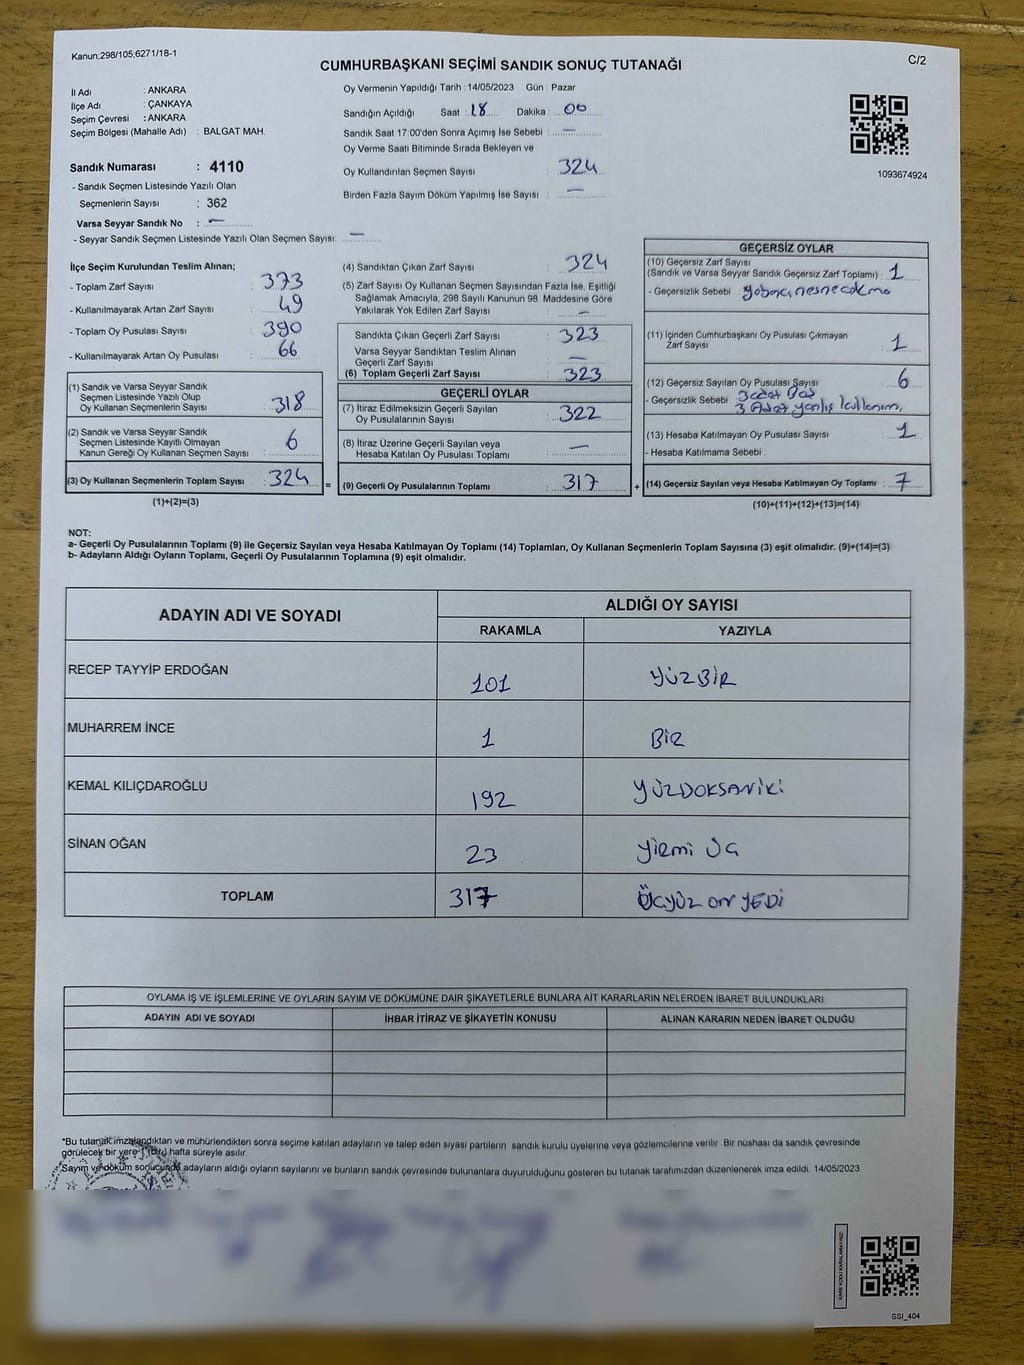 Kanun;298/105,6271/18-1
C/2
CUMHURBAŞKANI SEÇİMİ SANDIK SONUÇ TUTANAĞI
İl Adı : ANKARA
İlçe Adı : ÇANKAYA
Seçim Çevresi : ANKARA
Seçim Bölgesi (Mahalle Adı) : BALGAT MAH.
Sandık Numarası : 4110
- Sandık Seçmen Listesinde Yazılı Olan
Seçmenlerin Sayısı : 362
Varsa Seyyar Sandık No : —
- Seyyar Sandık Seçmen Listesinde Yazılı Olan Seçmen Sayısı: —
Oy Vermenin Yapıldığı Tarih : 14/05/2023 Gün : Pazar
Sandığın Açıldığı Saat : 18 Dakika : 00
Sandık Saat 17:00'den Sonra Açımış İse Sebebi : —
Oy Verme Saati Bitiminde Sırada Bekleyen ve
Oy Kullandırılan Seçmen Sayısı : 324
Birden Fazla Sayım Döküm Yapılmış İse Sayısı : —
1093674924
İlçe Seçim Kurulundan Teslim Alınan;
- Toplam Zarf Sayısı : 373
- Kullanılmayarak Artan Zarf Sayısı : 49
- Toplam Oy Pusulası Sayısı : 390
- Kullanılmayarak Artan Oy Pusulası : 66
(1) Sandık ve Varsa Seyyar Sandık
Seçmen Listesinde Yazılı Olup
Oy Kullanan Seçmenlerin Sayısı : 318
(2) Sandık ve Varsa Seyyar Sandık
Seçmen Listesinde Kayıtlı Olmayan
Kanun Gereği Oy Kullanan Seçmen Sayısı : 6
(3) Oy Kullanan Seçmenlerin Toplam Sayısı : 324
(1)+(2)=(3)
=
(4) Sandıktan Çıkan Zarf Sayısı : 324
(5) Zarf Sayısı Oy Kullanan Seçmen Sayısından Fazla İse, Eşitliği
Sağlamak Amacıyla, 298 Sayılı Kanunun 98. Maddesine Göre
Yakılarak Yok Edilen Zarf Sayısı : —
Sandıkta Çıkan Geçerli Zarf Sayısı : 323
Varsa Seyyar Sandıktan Teslim Alınan
Geçerli Zarf Sayısı : —
(6) Toplam Geçerli Zarf Sayısı : 323
GEÇERLİ OYLAR
(7) İtiraz Edilmeksizin Geçerli Sayılan
Oy Pusulalarının Sayısı : 322
(8) İtiraz Üzerine Geçerli Sayılan veya
Hesaba Katılan Oy Pusulası Toplamı : —
(9) Geçerli Oy Pusulalarının Toplamı : 317
+
GEÇERSİZ OYLAR
(10) Geçersiz Zarf Sayısı
(Sandık ve Varsa Seyyar Sandık Geçersiz Zarf Toplamı) : 1
- Geçersizlik Sebebi :
(11) İçinden Cumhurbaşkanı Oy Pusulası Çıkmayan
Zarf Sayısı : 1
(12) Geçersiz Sayılan Oy Pusulası Sayısı : 6
- Geçersizlik Sebebi : 3 adet Boş
3 Adet yanlış kullanım,
(13) Hesaba Katılmayan Oy Pusulası Sayısı : 1
- Hesaba Katılmama Sebebi :
(14) Geçersiz Sayılan veya Hesaba Katılmayan Oy Toplamı : 7
(10)+(11)+(12)+(13)=(14)
NOT:
a- Geçerli Oy Pusulalarının Toplamı (9) ile Geçersiz Sayılan veya Hesaba Katılmayan Oy Toplamı (14) Toplamları, Oy Kullanan Seçmenlerin Toplam Sayısına (3) eşit olmalıdır. (9)+(14)=(3)
b- Adayların Aldığı Oyların Toplamı, Geçerli Oy Pusulalarının Toplamına (9) eşit olmalıdır.
ADAYIN ADI VE SOYADI
ALDIĞI OY SAYISI
RAKAMLA YAZIYLA
RECEP TAYYİP ERDOĞAN 101 YÜZBİR
MUHARREM İNCE 1 BİR
KEMAL KILIÇDAROĞLU 192 YÜZDOKSANİKİ
SİNAN OĞAN 23 yirmi üç
TOPLAM 317 ÜÇYÜZ ON YEDİ
OYLAMA İŞ VE İŞLEMLERİNE VE OYLARIN SAYIM VE DÖKÜMÜNE DAİR ŞİKAYETLERLE BUNLARA AİT KARARLARIN NELERDEN İBARET BULUNDUKLARI
ADAYIN ADI VE SOYADI İHBAR İTİRAZ VE ŞİKAYETİN KONUSU ALINAN KARARIN NEDEN İBARET OLDUĞU
*Bu tutanak imzalandıktan ve mühürlendikten sonra seçime katılan adayların ve talep eden siyasi partilerin sandık kurulu üyelerine veya gözlemcilerine verilir. Bir nüshası da sandık çevresinde
görülecek bir yere 1 (bir) hafta süreyle asılır.
Sayım ve döküm sonucunda adayların aldığı oyların sayılarını ve bunların sandık çevresinde bulunanlara duyurulduğunu gösteren bu tutanak tarafımızdan düzenlenerek imza edildi. 14/05/2023
KARE KODU KARALAMAYINIZ!
SSI_404